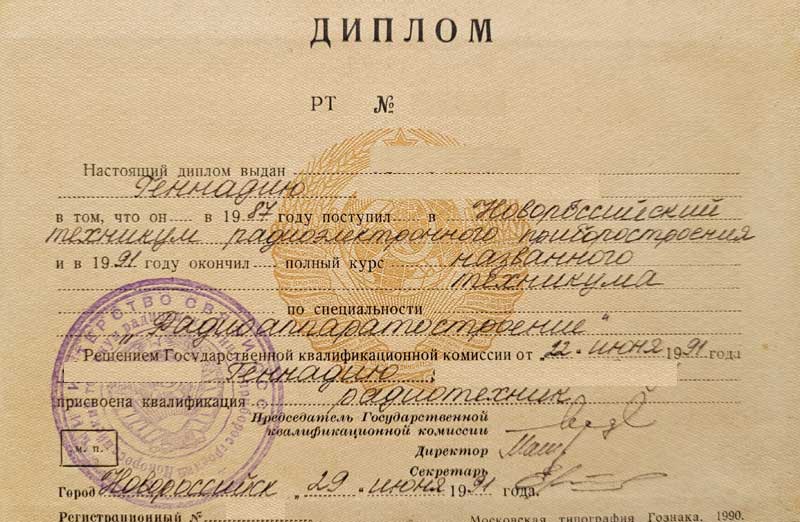 ДИПЛОМ
РТ №
Настоящий диплом выдан
Геннадию
в том, что он в 1987 году поступил в Новороссийский
техникум радиоэлектронного приборостроения
и в 1991 году окончил полный курс названного
техникума
по специальности
"Радиоаппаратостроение"
Решением Государственной квалификационной комиссии от "22" июня 1991 года
Геннадию
присвоена квалификация радиотехник
Председатель Государственной
квалификационной комиссии
Директор
Секретарь
м. п.
Город Новороссийск "29" июня 1991 года.
Регистрационный №
Московская типография Гознака. 1990.